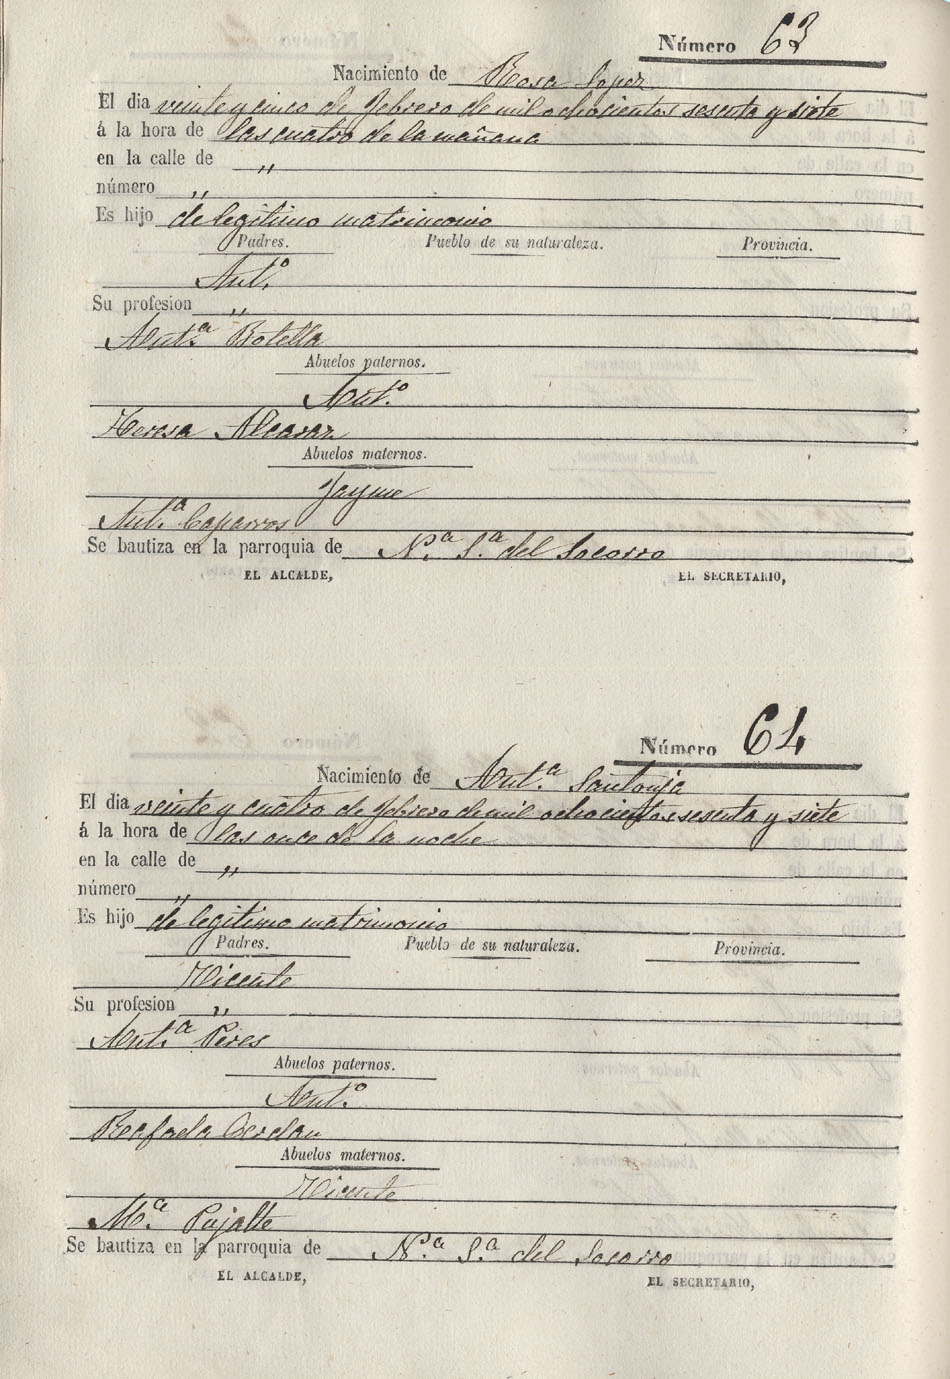 Número 63
Nacimiento de Rosa Lopez
El dia veinte y cinco de febrero de mil ochocientos sesenta y siete
á la hora de las cuatro de la mañana
en la calle de "
número "
Es hijo de legitimo matrimonio
Padres. Pueblo de su naturaleza. Provincia.
Ant.º
Su profesion "
Ant.ª Botella
Abuelos paternos.
Ant.º
Teresa Alcaraz
Abuelos maternos.
Jayme
Ant.ª Caparros
Se bautiza en la parroquia de N.ª S.ª del Socorro
EL ALCALDE, EL SECRETARIO,
Número 64
Nacimiento de Ant.ª Santonja
El dia veinte y cuatro de febrero de mil ochocientos sesenta y siete
á la hora de las once de la noche
en la calle de "
número "
Es hijo de legitimo matrimonio
Padres. Pueblo de su naturaleza. Provincia.
Vicente
Su profesion "
Ant.ª Peres
Abuelos paternos.
Ant.º
Rafaela Cerdan
Abuelos maternos.
Vicente
M.ª Pujalte
Se bautiza en la parroquia de N.ª S.ª del Socorro
EL ALCALDE, EL SECRETARIO,